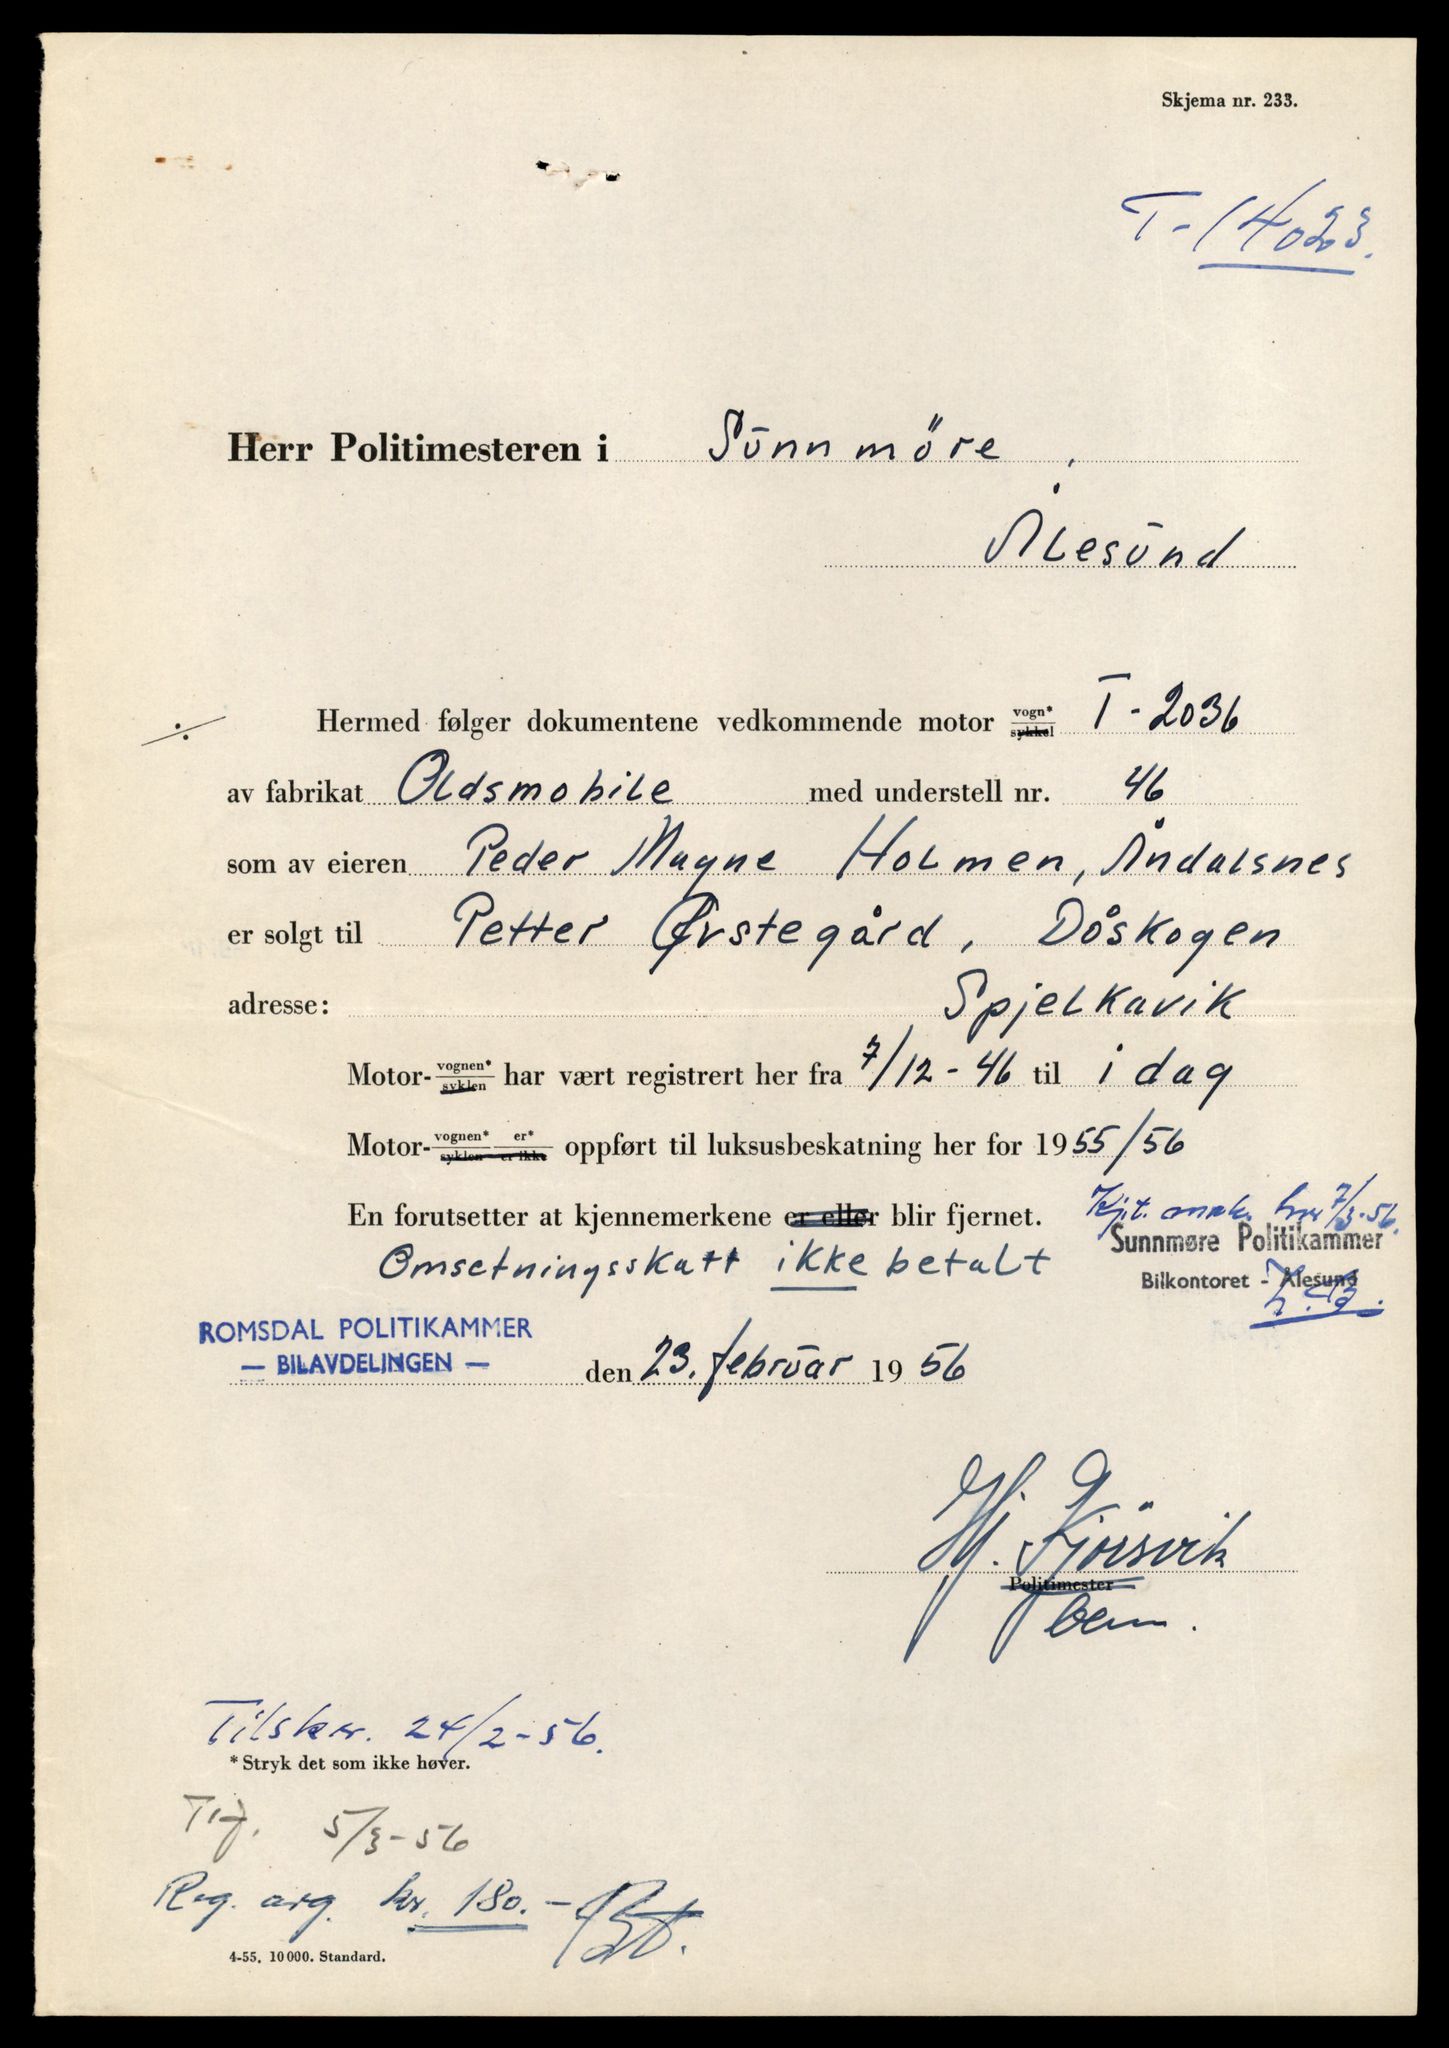 Skjema nr. 233.
T-14023.
Herr Politimesteren i Sunnmöre,
Ålesund
Hermed følger dokumentene vedkommende motor vogn* sykkel T-2036
av fabrikat Oldsmobile med understell nr. 46
som av eieren Peder Magne Holmen, Åndalsnes
er solgt til Petter Ørstegård, Dåskogen
adresse: Spjelkavik
Motor- vognen* syklen har vært registrert her fra 7/12-46 til i dag
Motor- vognen* syklen er* er ikke oppført til luksusbeskatning her for 1955/56
En forutsetter at kjennemerkene er eller blir fjernet.
7/3-56.
Omsetningsskatt ikke betalt
Sunnmøre Politikammer
Bilkontoret - Ålesund
ROMSDAL POLITIKAMMER
— BILAVDELINGEN —
den 23. februar 1956
Hj. Kjörsvik
Politimester
Tilskr. 24/2-56.
*Stryk det som ikke høver.
Tlf. 5/3-56
Reg. avg. kr. 180.-
4-55. 10 000. Standard.